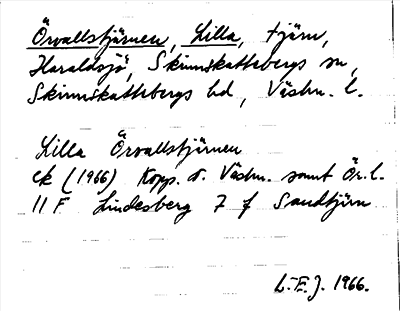 Örvallstjärnen, Lilla, tjärn,
Haraldsjö, Skinnskattebergs sn,
Skinnskattebergs hd, Västm. l.
Lilla Örvallstjärnen
ek (1966) Kopp. o. Västm. samt Ör. l.
11 F Lindesberg 7 f Sandtjärn
L.-E.J. 1966.